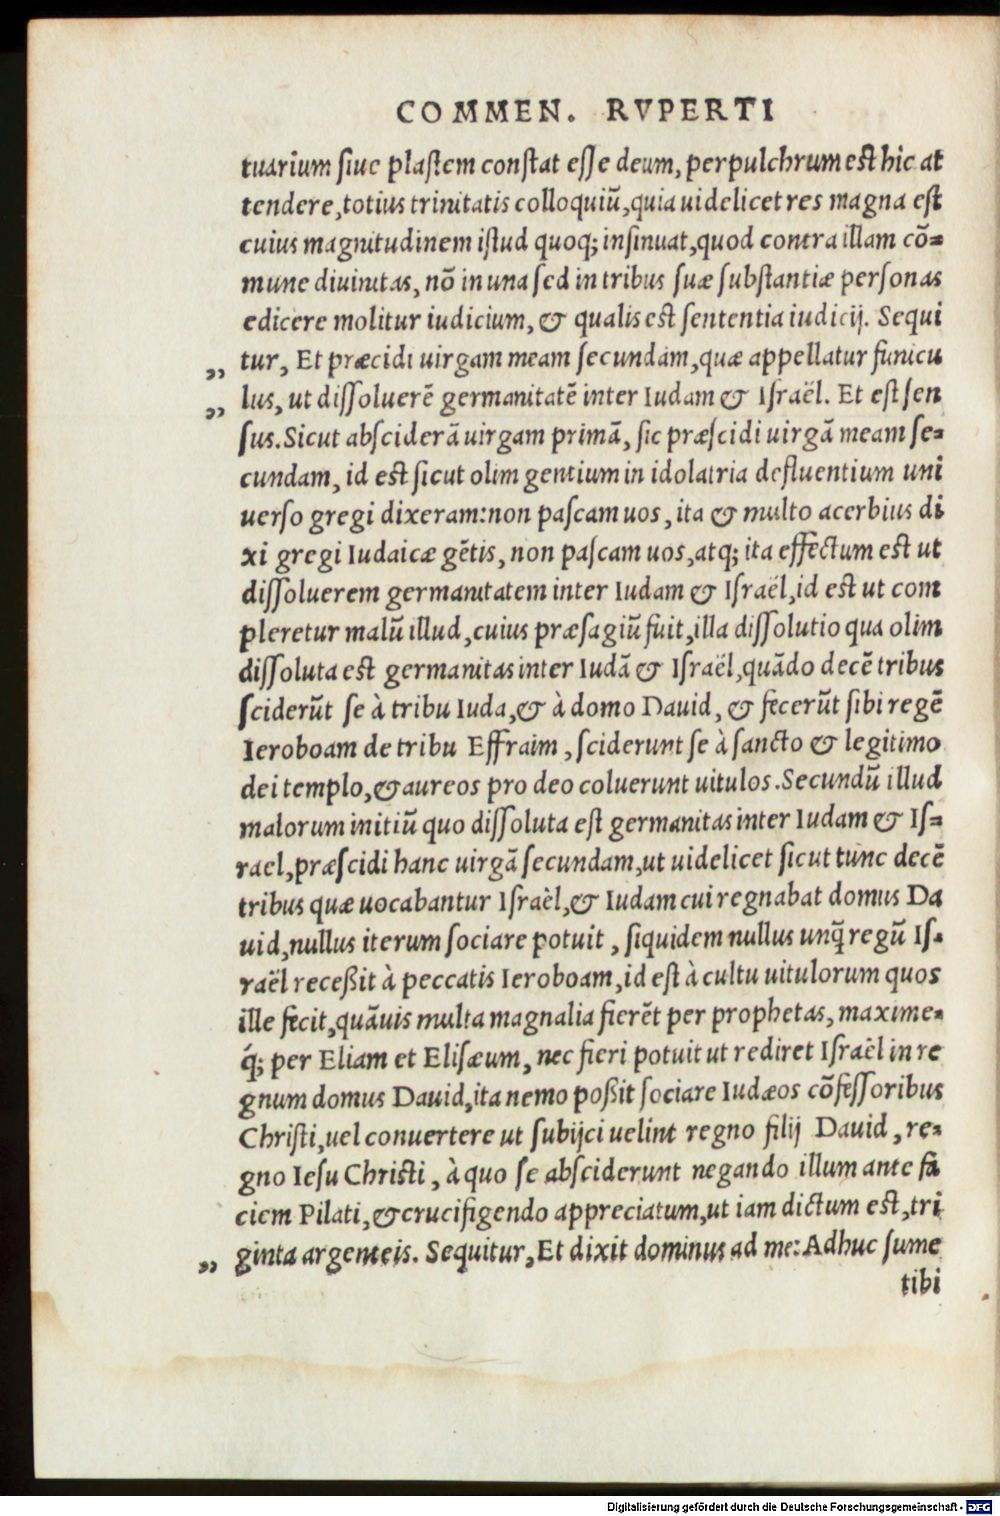 COMMEN. RVPERTI
tuarium siue plastem constat esse deum, perpulchrum est hic at
tendere, totius trinitatis colloquiũ, quia uidelicet res magna est
cuius magnitudinem istud quoq; insinuat, quod contra illam cõ-
mune diuinitas, nõ in una sed in tribus suæ substantiæ personas
edicere molitur iudicium, & qualis est sententia iudicij. Sequi
„ tur, Et præcidi uirgam meam secundam, quæ appellatur funicu
„ lus, ut dissoluerẽ germanitatẽ inter Iudam & Israël. Et est sen
sus. Sicut absciderã uirgam primã, sic præscidi uirgã meam se-
cundam, id est sicut olim gentium in idolatria defluentium uni
uerso gregi dixeram: non pascam uos, ita & multo acerbius di
xi gregi Iudaicæ gẽtis, non pascam uos, atq; ita effectum est ut
dissoluerem germanitatem inter Iudam & Israël, id est ut com
pleretur malũ illud, cuius præsagiũ fuit, illa dissolutio qua olim
dissoluta est germanitas inter Iudã & Israël, quãdo decẽ tribus
sciderũt se à tribu Iuda, & à domo Dauid, & fecerũt sibi regẽ
Ieroboam de tribu Effraim, sciderunt se à sancto & legitimo
dei templo, & aureos pro deo coluerunt uitulos. Secundũ illud
malorum initiũ quo dissoluta est germanitas inter Iudam & Is-
rael, præscidi hanc uirgã secundam, ut uidelicet sicut tunc decẽ
tribus quæ uocabantur Israël, & Iudam cui regnabat domus Da
uid, nullus iterum sociare potuit, siquidem nullus unq̃ regũ Is-
raël receßit à peccatis Ieroboam, id est à cultu uitulorum quos
ille fecit, quãuis multa magnalia fierẽt per prophetas, maxime-
q́; per Eliam et Elisæum, nec fieri potuit ut rediret Israël in re
gnum domus Dauid, ita nemo poßit sociare Iudæos cõfessoribus
Christi, uel conuertere ut subijci uelint regno filij Dauid, re-
gno Iesu Christi, à quo se absciderunt negando illum ante fa
ciem Pilati, & crucifigendo appreciatum, ut iam dictum est, tri
„ ginta argenteis. Sequitur, Et dixit dominus ad me: Adhuc sume
tibi
Digitalisierung gefördert durch die Deutsche Forschungsgemeinschaft - DFG